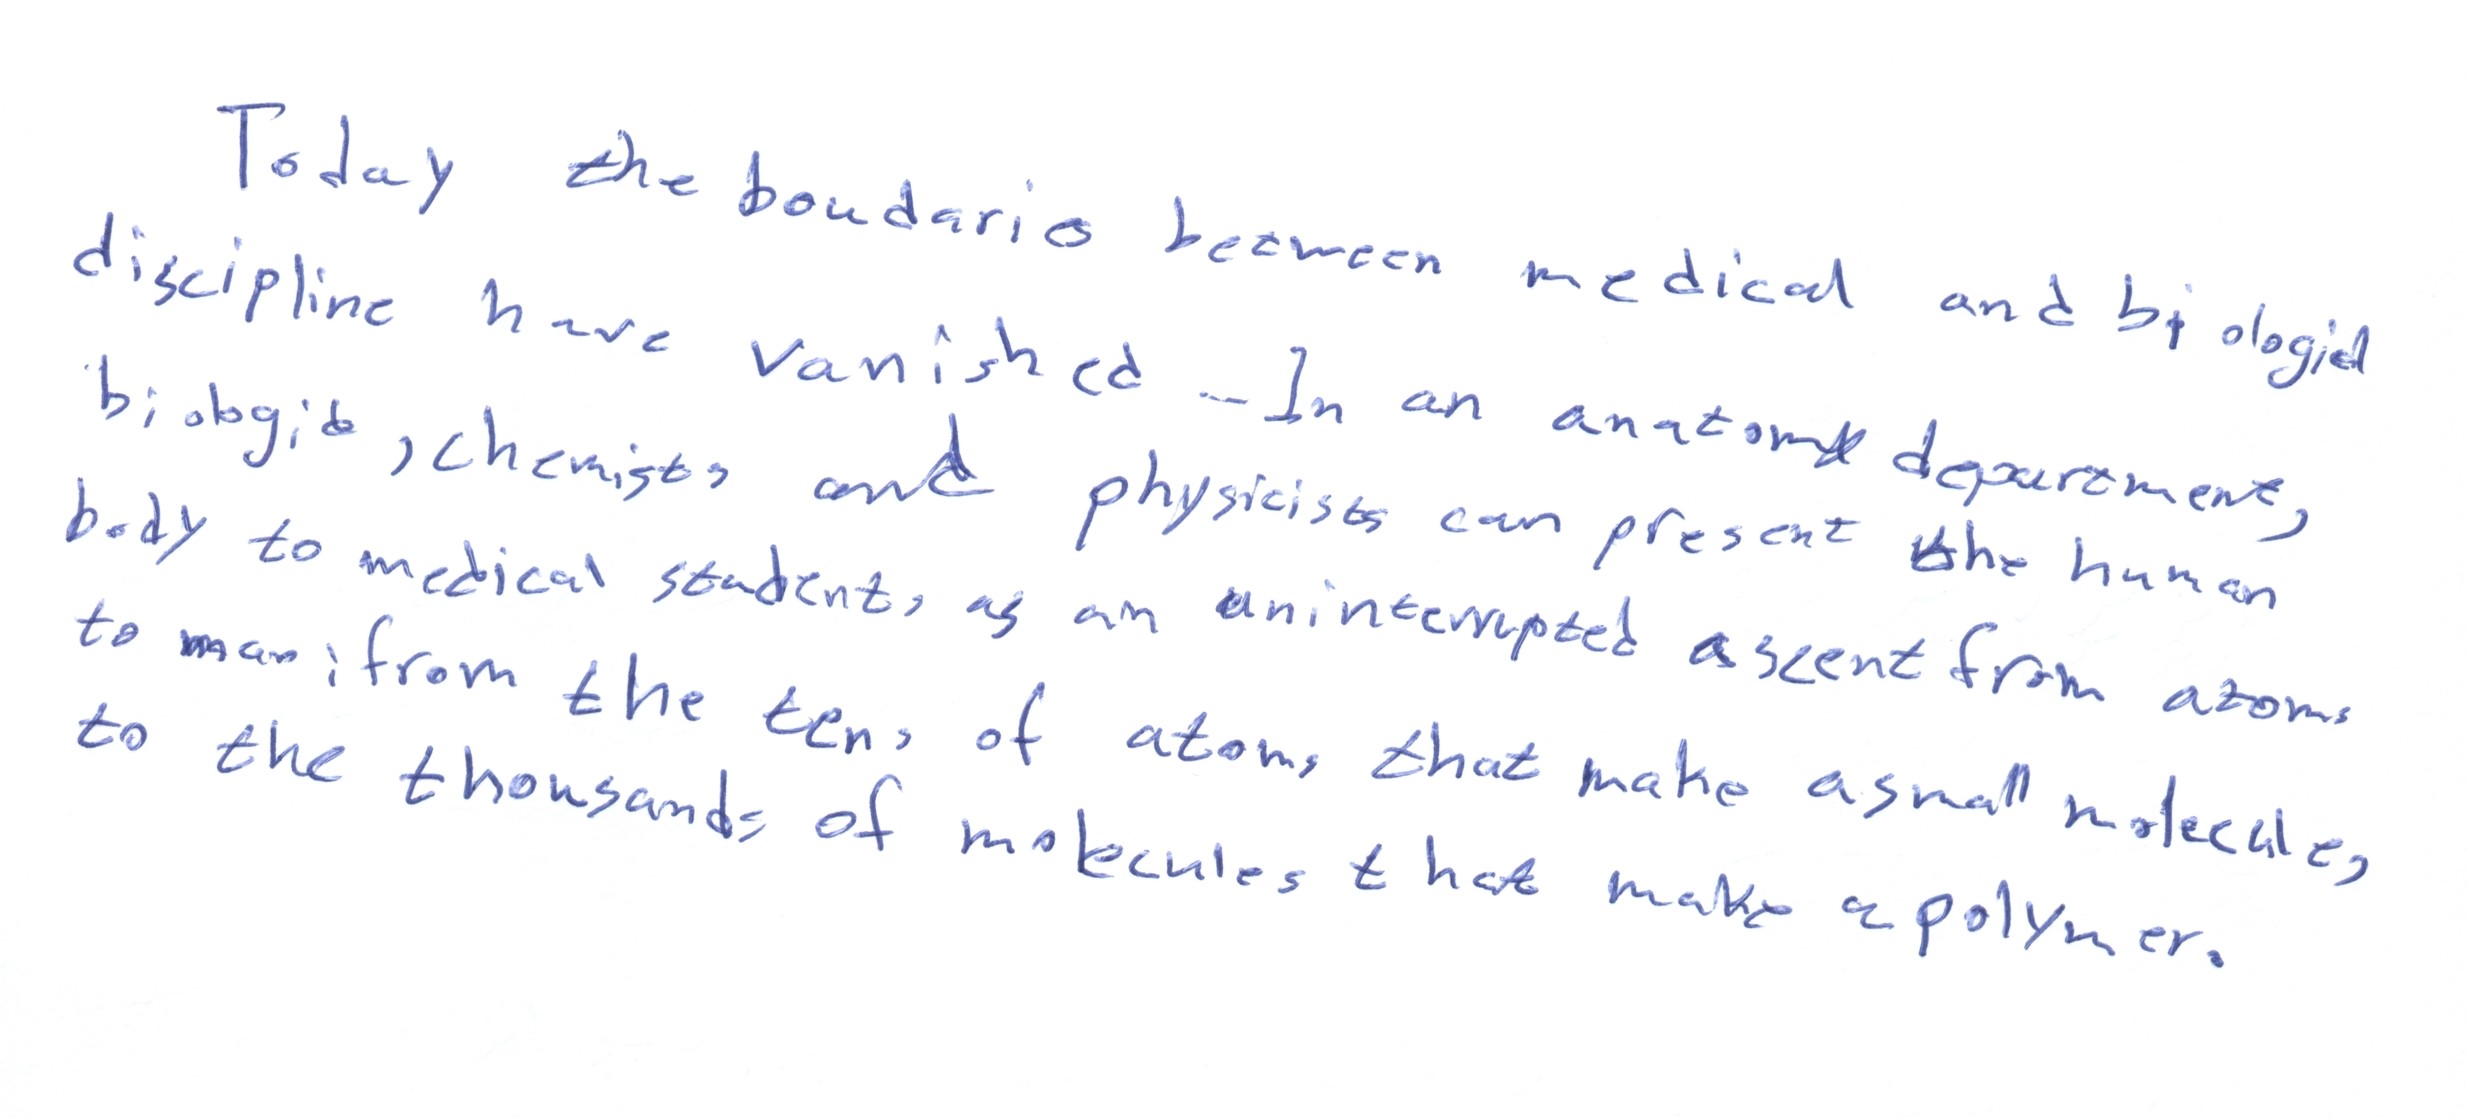 Today the boudaris between medical and biologicl
discipline have vanished -- In an anatomy department,
biologits, chemists and physicists can present the human
body to medical students as an uninterrupted ascent from atoms
to man; from the tens of atoms that make a small molecule,
to the thousands of molecules that make a polymer.